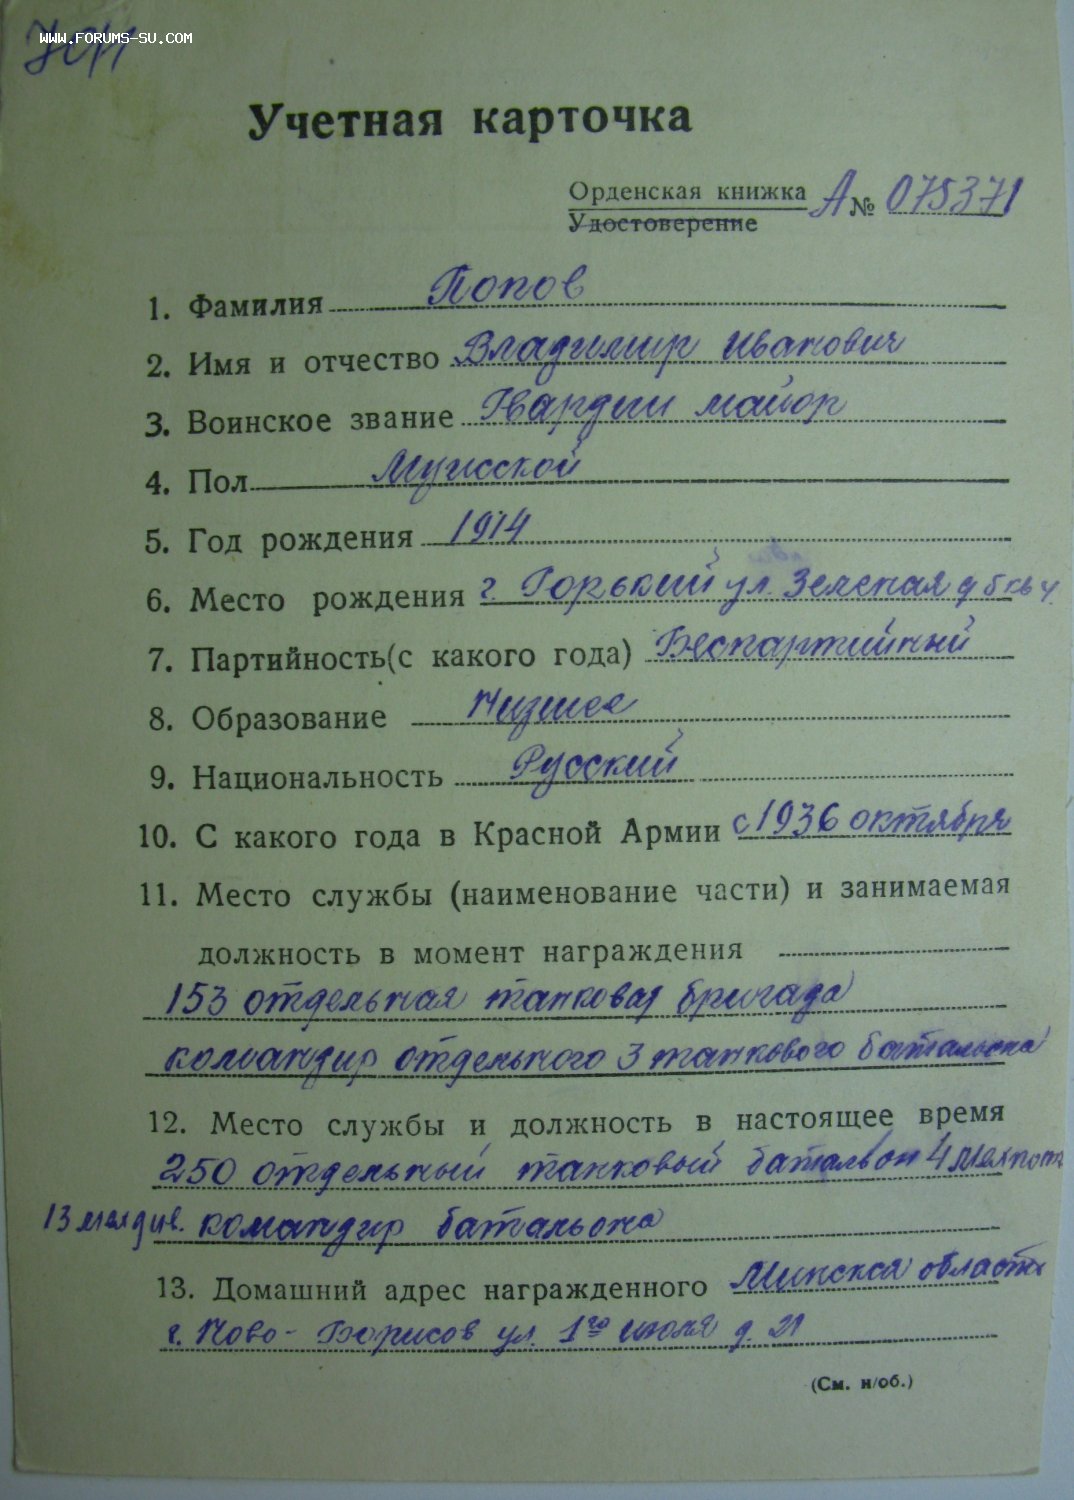 WWW.FORUMS-SU.COM
Учетная карточка
Орденская книжка А № 075371
Удостоверение
1. Фамилия Попов
2. Имя и отчество Владимир Иванович
3. Воинское звание Гвардии майор
4. Пол Мужской
5. Год рождения 1914
6. Место рождения г. Горький ул. Зеленая д 6 кв 4
7. Партийность (с какого года) Беспартийный
8. Образование Низшее
9. Национальность Русский
10. С какого года в Красной Армии с 1936 октября
11. Место службы (наименование части) и занимаемая
должность в момент награждения
153 отдельная танковая бригада
командир отдельного 3 танкового батальона
12. Место службы и должность в настоящее время
250 отдельный танковый батальон 4 мехполк
13 мехдив. командир батальона
13. Домашний адрес награжденного Минская область
г. Ново-Борисов ул. 1го июля д. 21
(См. н/об.)